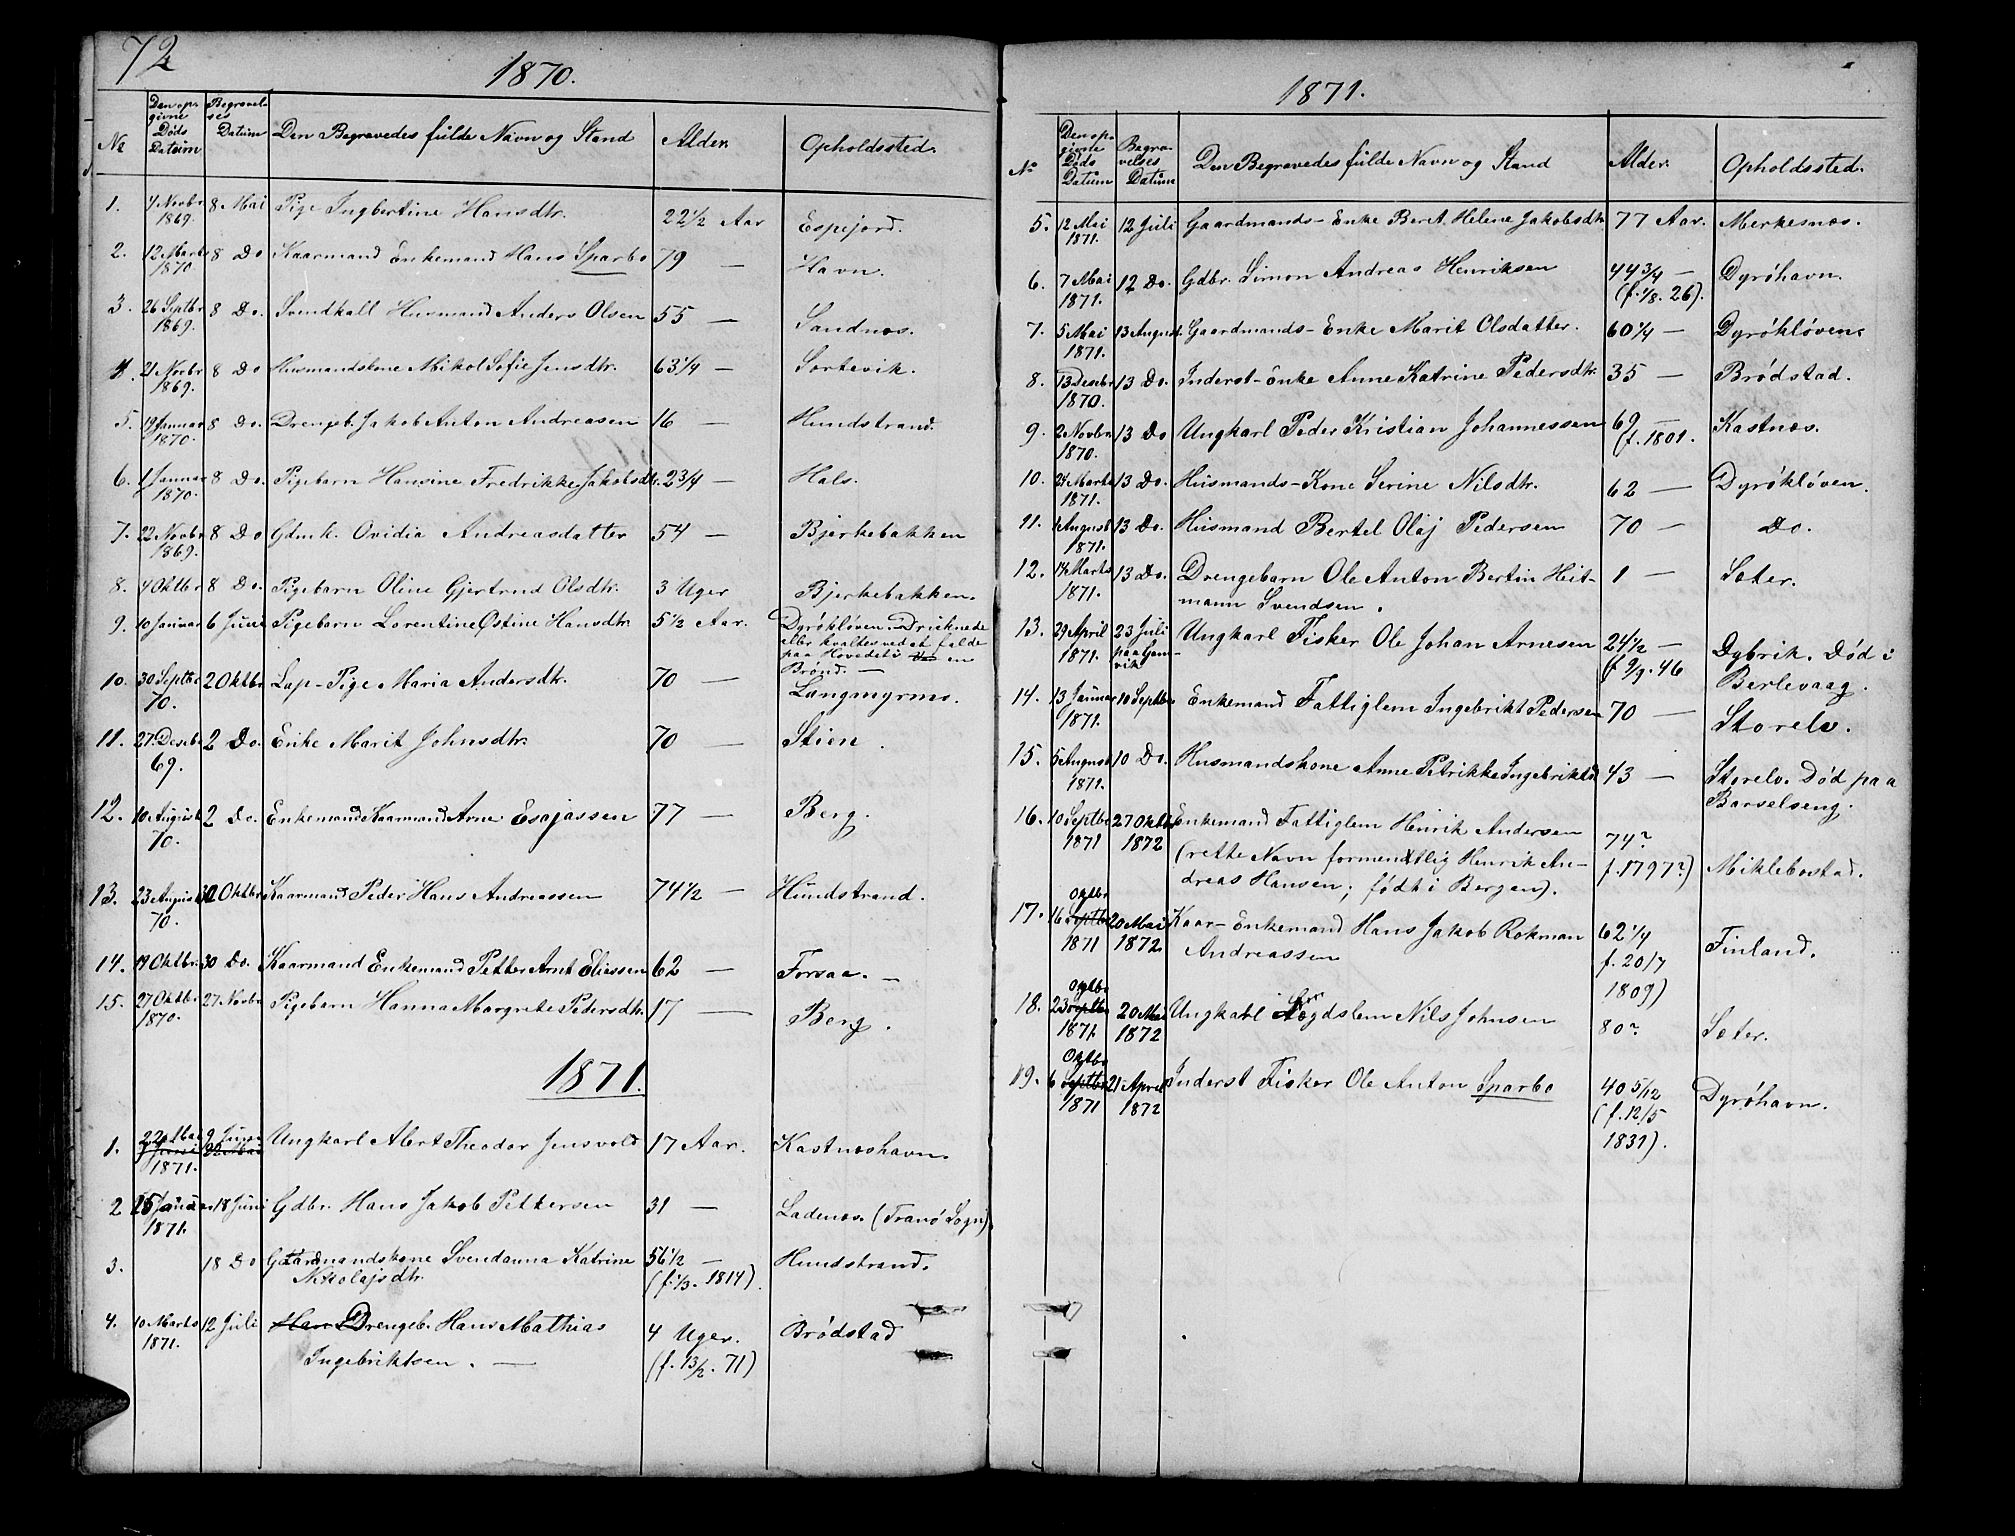 72
1870.
No
Den op-
givne
Døds
Datum
Begravel-
ses
Datum
Den Begravedes fulde Navn og Stand
Alder
Opholdssted.
1. 7 Novbr 1869. 8 Mai Pige Ingbertine Hansdtr. 22 1/2 Aar Espejord.
2. 12 Marts 1870 8 Do Kaarmand Enkemand Hans Sparbo 79 — Havn.
3. 26 Septbr 1869. 8 Do. Svendkall Husmand Anders Olsen 55 — Sandnæs.
4. 21 Novbr 1869. 8 Do Husmandskone Mikol Sofie Jensdtr. 63 1/4 — Sørtevik.
5. 19 Januar 1870. 8 Do. Drengeb. Jakob Anton Andreasen 16 — Hundstrand.
6. 1 Januar 1870. 8 Do. Pigebarn Hansine Fredrikke Jakobsdtr. 2 3/4 — Hals.
7. 22 Novbr 1869. 8 Do Gdmk. Ovidia Andreasdatter 54 — Bjerkebakken
8. 4 Oktbr 8 Do. Pigebarn Oline Gjertrud Olsdtr. 3 Uger Bjerkebakken.
9. 10 Januar 6 Juni Pigebarn Lorentine Østine Hansdtr. 5 1/2 Aar. Dyrøkløven. Druknede
eller kvaltes ved at falde
paa Hovedet i en
Brønd. —
10. 30 Septbr 70. 2 Oktbr Lap-Pige Maria Andersdtr. 70 — Langmyrmo.
11. 27 Desebr 69. 2 Do. Enke Marit Johnsdtr. 70 — Stien.
12. 10 August 70. 2 Do. Enkemand Kaarmand Arne Esajassen 77 — Berg.
13. 23 August 70. 30 Oktbr Kaarmand Peder Hans Andreassen 74 1/2 — Hundstrand.
14. 19 Oktbr 30 Do. Kaarmand Enkemand Petter Arnt Eliessen 62 — Forsaa. —
15. 27 Oktbr 1870. 27 Novbr Pigebarn Hanna Margrete Pedersdtr. 17 — Berg.
1871.
1. 22 Mai 1871. 9 Juni Ungkarl Albert Theodor Jensvold 17 Aar. Kastneshavn.
2 15 Januar 1871. 18 Juni Gdbr. Hans Jakob Pettersen 31 — Ladenes. (Tranø Sogn)
3. 18 Do Gaardmandskone Svendanna Katrine 56 1/2 — Hundstrand.
Nikolajsdtr. (f. 1/3. 1814).
4. 10 Marts 1871. 12 Juli Han Drengeb. Hans Mathias 4 Uger. Brødstad
Ingebriktsen. — (f. 13/2. 71)
1871.
No
Den op-
givne
Døds
Datum
Begra-
velses
Datum
Den Begravedes fulde Navn og Stand
Alder.
Opholdssted.
5. 12 Mai 1871. 12 Juli Gaardmands-Enke Beret Helene Jakobsdtr 77 Aar. Merkesnæs.
6. 7 Mai 1871. 12 Do. Gdbr. Simon Andreas Henriksen 44 3/4 — Dyrøhavn.
(f. 1/8. 26).
7. 5 Mai 1871. 13 August Gaardmands-Enke Marit Olsdatter. 60 1/4 — Dyrøkløven
8. 13 Desebr 1870. 13 Do. Inderst-Enke Anne Katrine Pedersdtr. 35 — Brødstad.
9. 2 Novbr 1870. 13 Do Ungkarl Peder Kristian Johannessen 69 — Kastnæs.
f. 1801.
10. 24 Marts 1871. 13 Do. Husmands-Kone Serine Nilsdtr. 62 — Dyrøkløven.
11. 4 August 1871. 13 Do. Husmand Bertel Olaj Pedersen 70 — Do.
12. 14 Marts 1871. 13 Do. Drengebarn Ole Anton Bertin Heit- 1 — Sæter.
mann Svendsen.
13. 29 April 1871. 23 Juli paa Gam-
vik Ungkarl Fisker Ole Johan Arnesen 24 1/2 — Dybvik. Død i
f 9/9. 46 Berlevaag.
14. 13 Januar 1871. 10 Septbr Enkemand Fattiglem Ingebrikt Pedersen 70 — Storelv.
15. 5 August 1871. 10 Do. Husmandskone Anne Petrikke Ingebriktsd 43 — Storelv. Død paa
Barselseng.
16. 10 Septbr 1871 27 Oktbr 1872 Enkemand Fattiglem Henrik Andersen 74?
(rette Navn formentlig Henrik An- f. 1797?) Miklebostad.
dreas Hansen; født i Bergen).
17. 16 Septbr Oktbr 1871 20 Mai 1872 Kaar-Enkemand Hans Jakob Rokman 62 1/4 Finland.
Andreassen f. 20/7
1809)
18. 23 Septbr Oktbr 1871. 20 Mai 1872 Ungkarl Lægdslem Nils Johnsen 80? Sæter.
19. 6 Septbr Oktbr 1871 21 April 1872 Inderst Fisker Ole Anton Sparbo 40 5/12 Dyrøhavn.
(f. 12/5
1831).